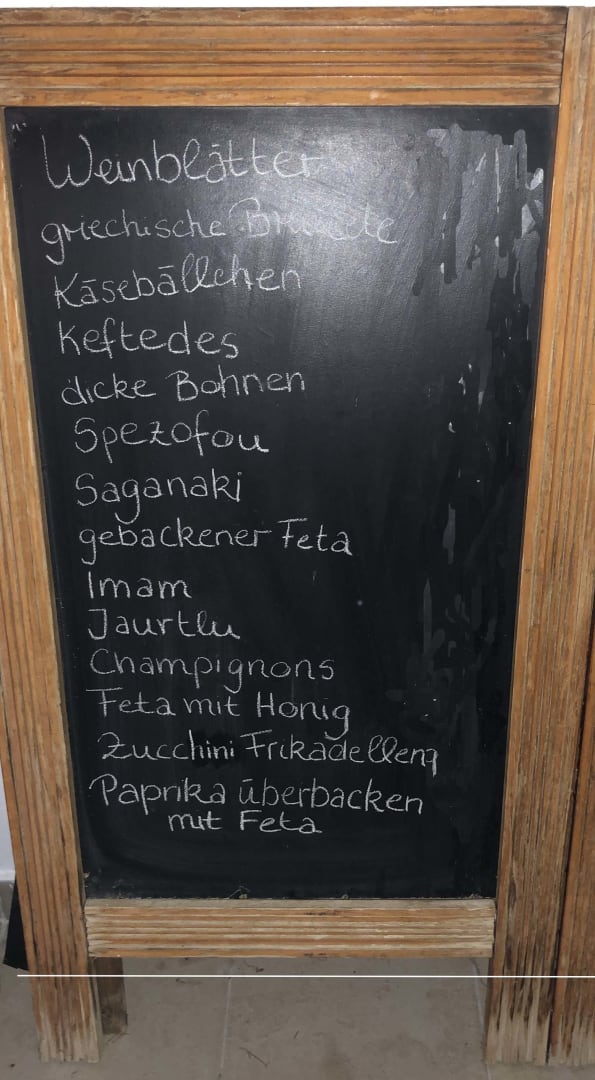 Weinblätter
griechische
Käsebällchen
Keftedes
dicke Bohnen
Spezofou
Saganaki
gebackener Feta
Imam
Jaurtlu
Champignons
Feta mit Honig
Zucchini Frikadellen
Paprika überbacken
mit Feta